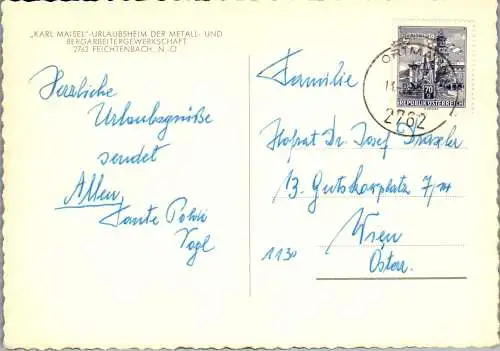 „KARL MAISEL"-URLAUBSHEIM DER METALL- UND
BERGARBEITERGEWERKSCHAFT
2763 FEICHTENBACH, N.-Ö.
Herzliche
Urlaubsgrüße
sendet
Allen,
Tante Poldi
Vogl
Familie
Hofrat Dr. Josef
13. Gutzkowplatz 7/
Wien
1130
Österr.
70
REPUBLIK ÖSTERREICH
2762